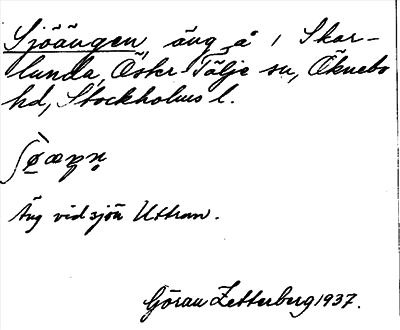 Sjöängen, äng å 1 Skar-
lunda, Öster Tälje sn, Öknebo
hd, Stockholms l.
Äng vid sjön Uttran.
Göran Zetterberg 1937.